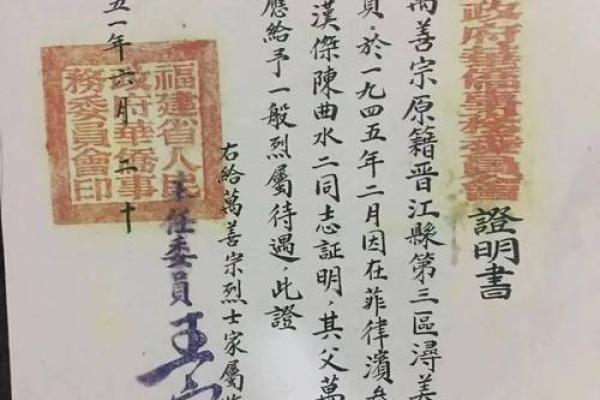 政府華僑事務委員會
證明書
萬善宗原籍晋江縣第三區潯美
員，於一九四五年二月因在菲律濱
漢傑陳曲水二同志証明，其父萬
應給予一般烈屬待遇，此證
右給萬善宗烈士家屬
主任委員王
五一年六月二十
福建省人民
政府華僑事
務委員會印